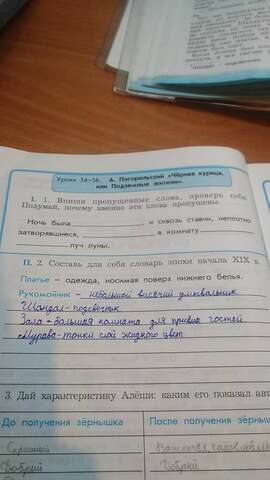 Уроки 34–36. А. Погорельский «Чёрная курица,
или Подземные жители».
I. 1. Впиши пропущенные слова, проверь себя.
Подумай, почему именно эти слова пропущены.
Ночь была , и сквозь ставни, неплотно
затворявшиеся, в комнату
луч луны.
II. 2. Составь для себя словарь эпохи начала XIX в.
Платье – одежда, носимая поверх нижнего белья.
Рукомойник – небольшой висячий умывальник
Шандал - подсвечник
Зала - большая комната для приёма гостей
Мурава - тонкий слой жидкого цвет
3. Дай характеристику Алёши: каким его показал авт
До получения зёрнышка
После получения зёрны
Скромный
Добрый